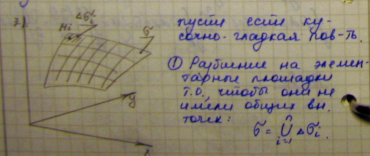 Δσᵢ
Mᵢ
σ
y
x
пусть есть ку-
сочно-гладкая пов-ть.
① Разбиение на элемен-
тарные площадки
т.о., чтобы они не
имели общих вн.
точек:
σ = ⋃ⁿᵢ₌₁ Δσᵢ